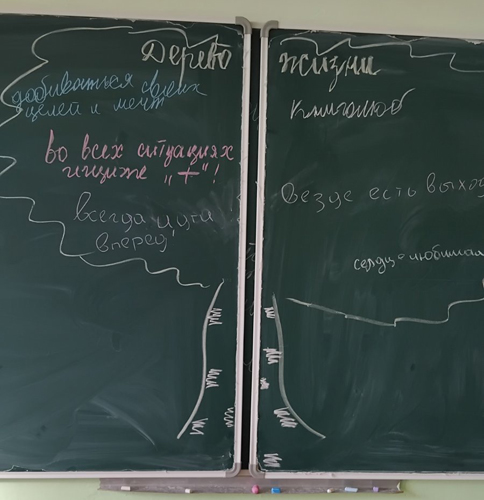 Дерево жизни
добиваться своих
целей и мечт
Книголюб
во всех ситуациях
ищи же "+"!
Везде есть выход
всегда идти
вперед
сердце любимая